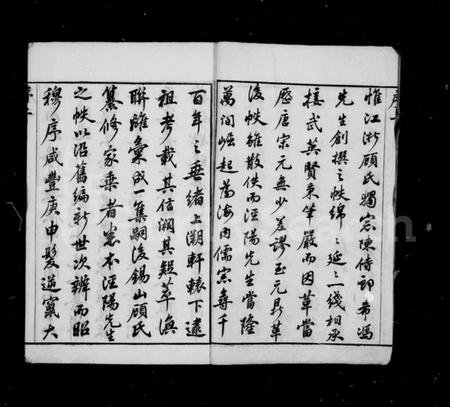 惟江浙顧氏獨宗陳侍郎希馮
先生創撰之帙綿綿延延一綫相承
接武英賢秉筆嚴而因革當
歷唐宋元無少差謬至元鼎革
後帙雖散佚而涇陽先生當隆
萬間崛起為海內儒宗尋千
百年之垂緒上溯軒轅下逮
祖考載其信闕其疑萃渙
聯雖彙成一集嗣後錫山顧氏
纂修家乘者宗本涇陽先生
之帙以沿舊編新世次辦而昭
穆序咸豐庚申髮逆竄大